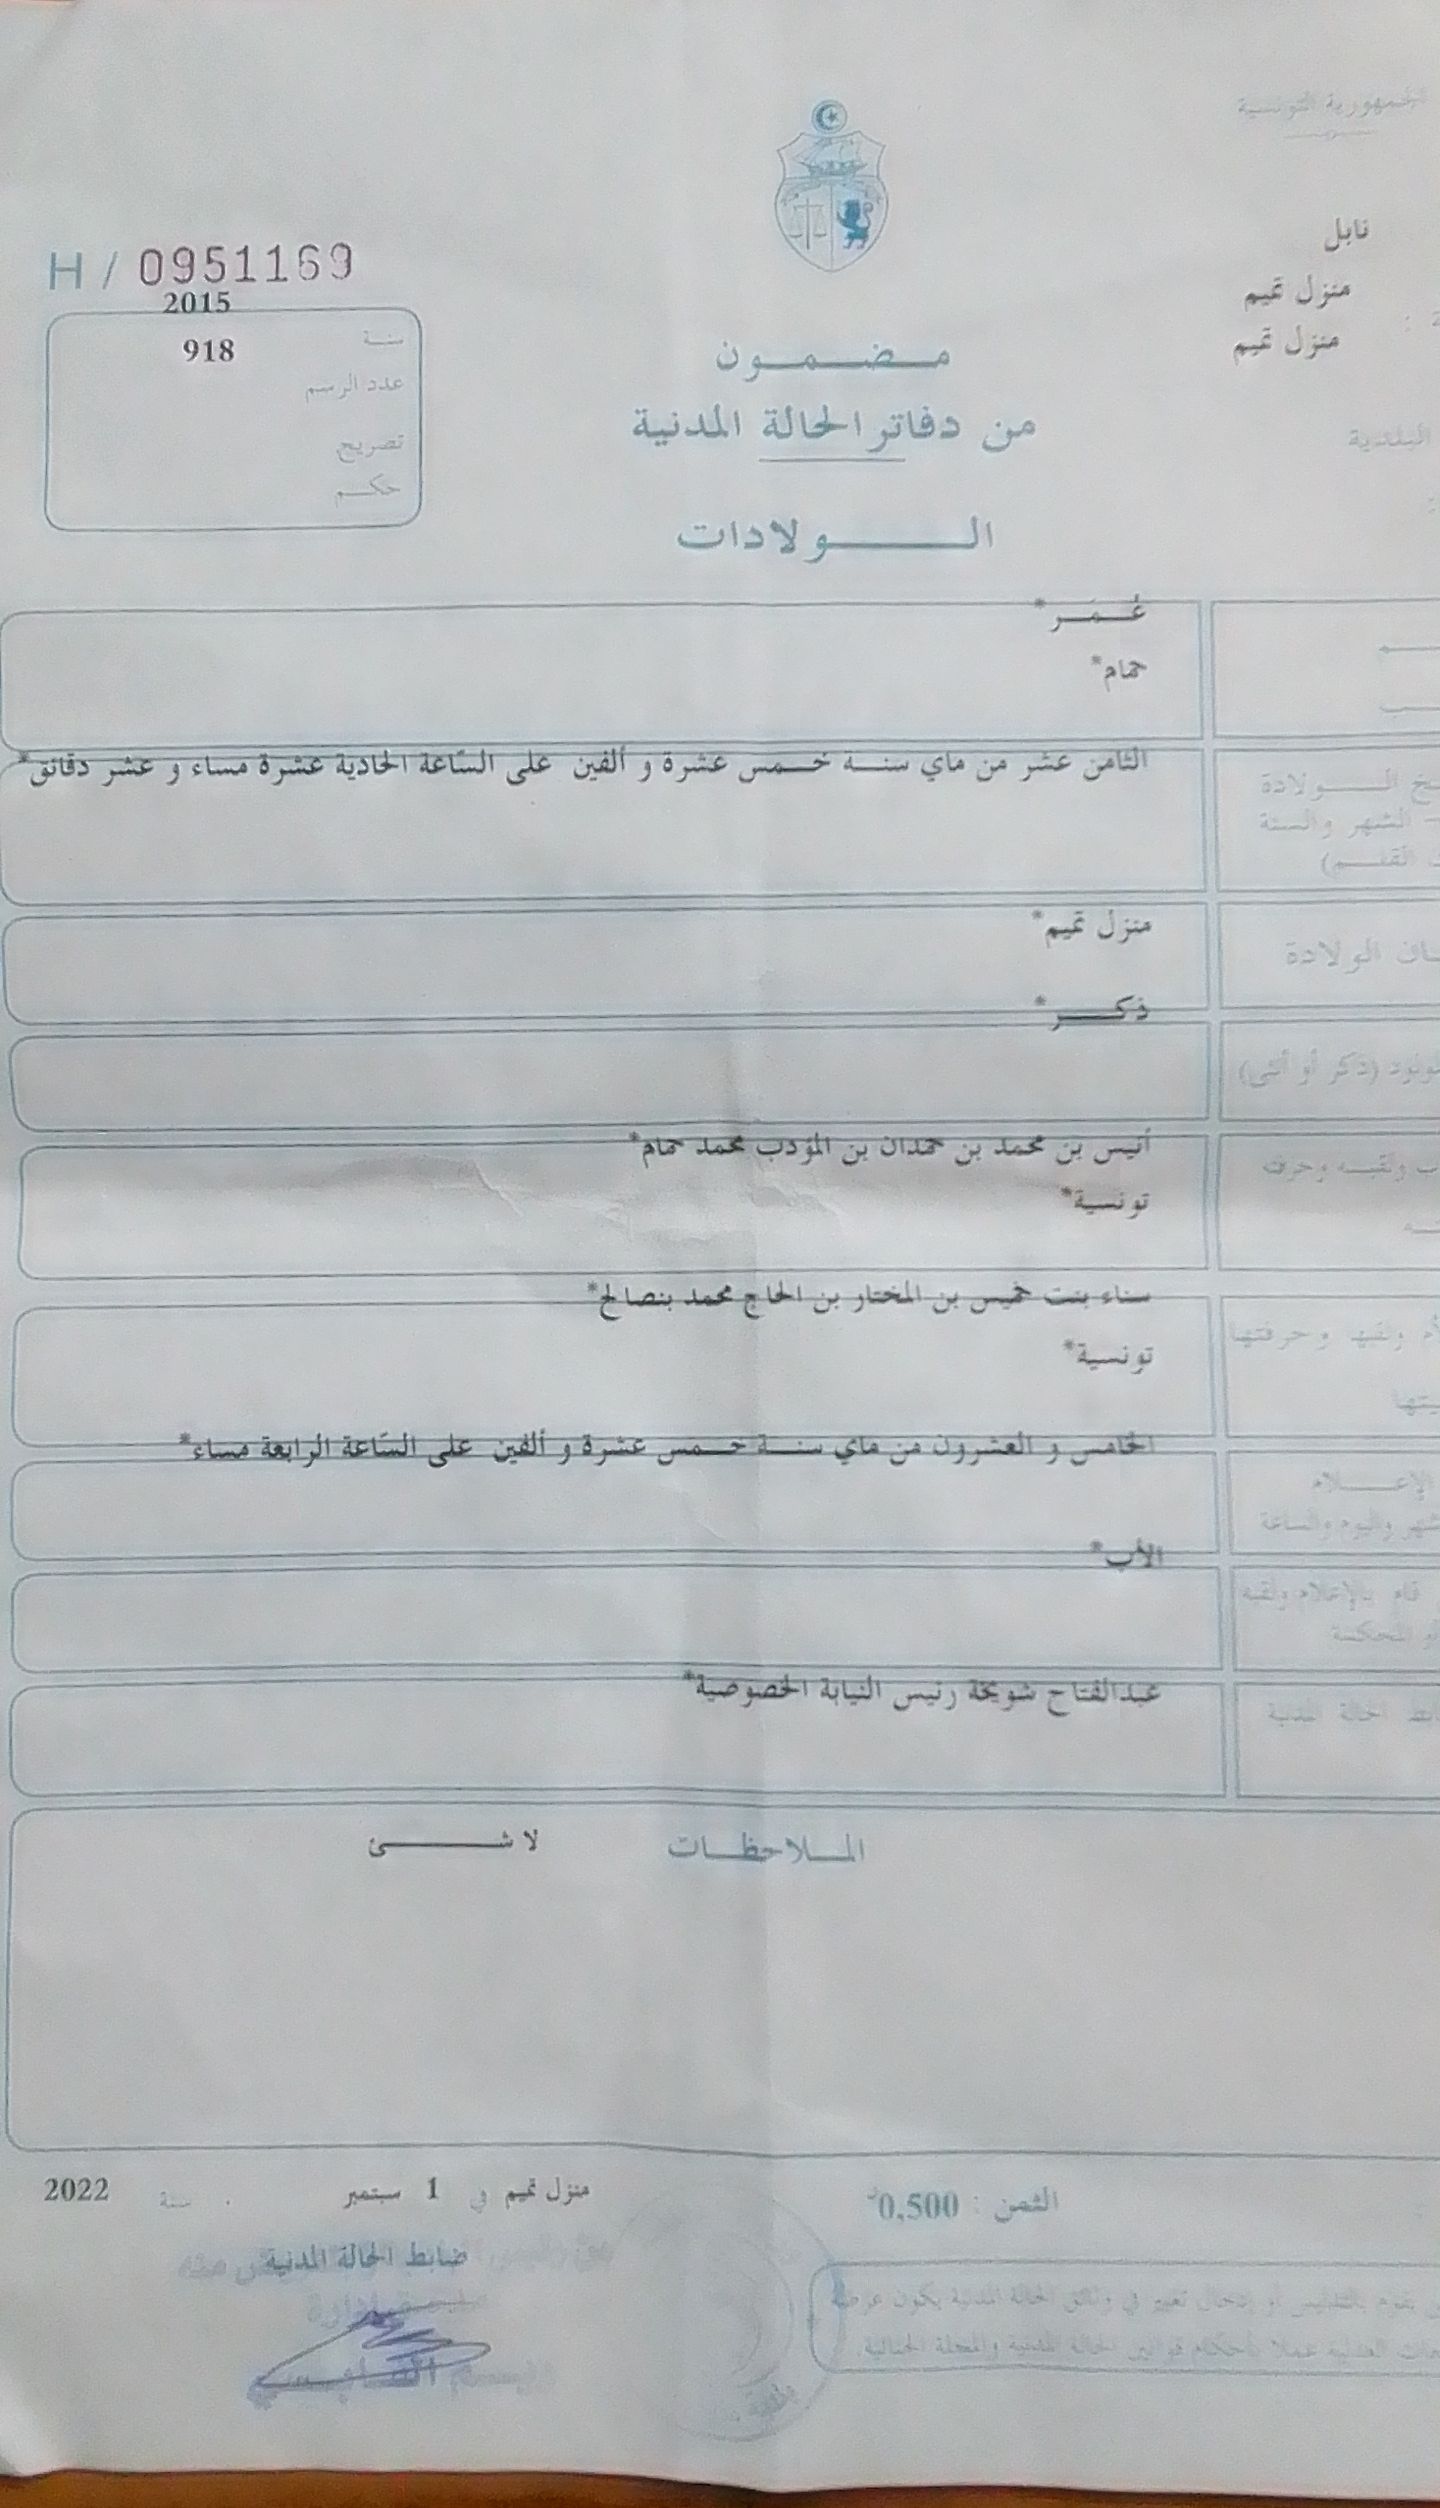 الجمهورية التونسية
نابل
منزل تميم
منزل تميم
البلدية
H / 0951169
2015
سنة
918
عدد الرسم
تصريح
حكم
مضمون
من دفاتر الحالة المدنية
الولادات
عُمَر*
حمام*
الثامن عشر من ماي سنة خمس عشرة و ألفين على السّاعة الحادية عشرة مساء و عشر دقائق*
الولادة
الشهر والسنة
القلم)
منزل تميم*
الولادة
ذكر*
(ذكر أو أنثى)
أنيس بن محمد بن حمدان بن المؤدب محمد حمام*
ولقبه وحرفته
تونسية*
سناء بنت خميس بن المختار بن الحاج محمد بنصالح*
ولقبها وحرفتها
تونسية*
الخامس و العشرون من ماي سنة خمس عشرة و ألفين على السّاعة الرابعة مساء*
الإعلام
واليوم والساعة
الأب*
قام بالإعلام ولقبه
أو المحكمة
عبدالفتاح شويخة رئيس النيابة الخصوصية*
الحالة المدنية
الملاحظات
لا شئ
الثمن : 0,500
منزل تميم في 1 سبتمبر سنة 2022
ضابط الحالة المدنية
يقوم بالتدليس أو إدخال تغيير في وثائق الحالة المدنية يكون عرضة
العدلية عملا بأحكام قوانين الحالة المدنية والمجلة الجنائية.